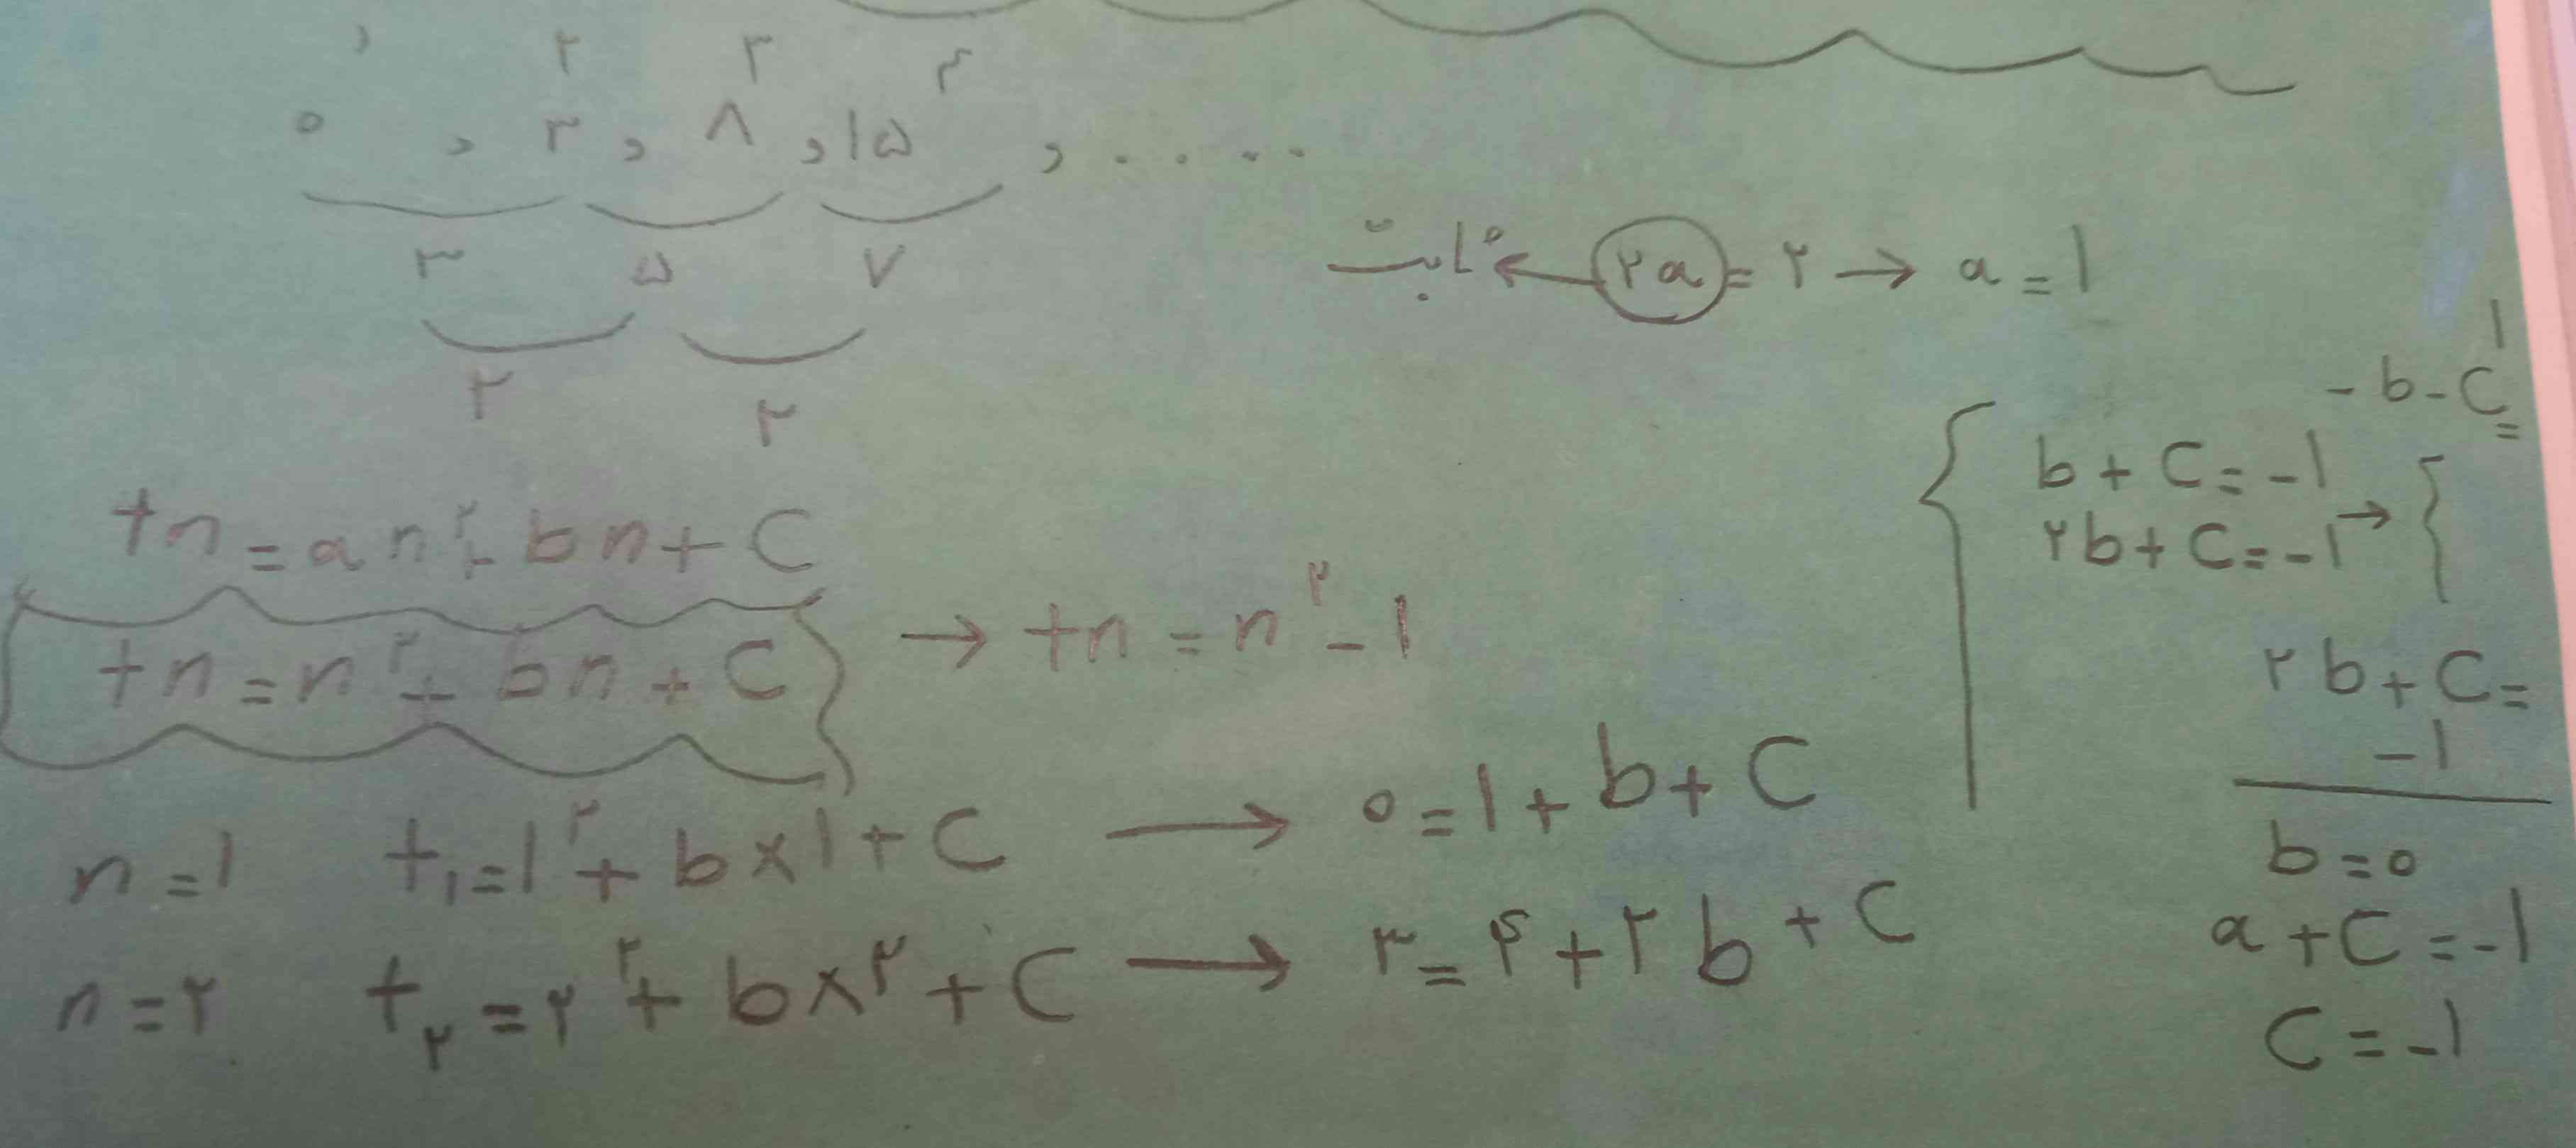 ۱ ۲ ۳ ۴
۰ , ۳ , ۸ , ۱۵ , ....
۳ ۵ ۷
ثابت ← ۲a = ۲ → a = ۱
۲ ۲
tn = an² + bn + C
tn = n² + bn + C → tn = n² - ۱
n = ۱ t₁ = ۱² + b×۱ + C → ۰ = ۱ + b + C
n = ۲ t₂ = ۲² + b×۲ + C → ۳ = ۴ + ۲b + C
b + C = -۱
۲b + C = -۱ →
-b - C = ۱
۲b + C = -۱
b = ۰
a + C = -۱
C = -۱